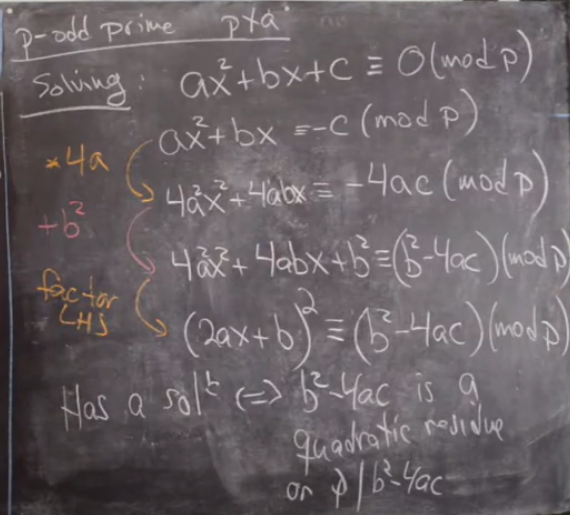 p-odd prime p∤a
Solving: ax²+bx+c ≡ 0(mod p)
ax²+bx ≡-c (mod p)
*4a
4a²x²+4abx ≡ -4ac (mod p)
+b²
4a²x²+4abx+b²≡(b²-4ac)(mod p)
factor
LHS
(2ax+b)² ≡(b²-4ac)(mod p)
Has a solⁿ <=> b²-4ac is a
quadratic residue
or p|b²-4ac